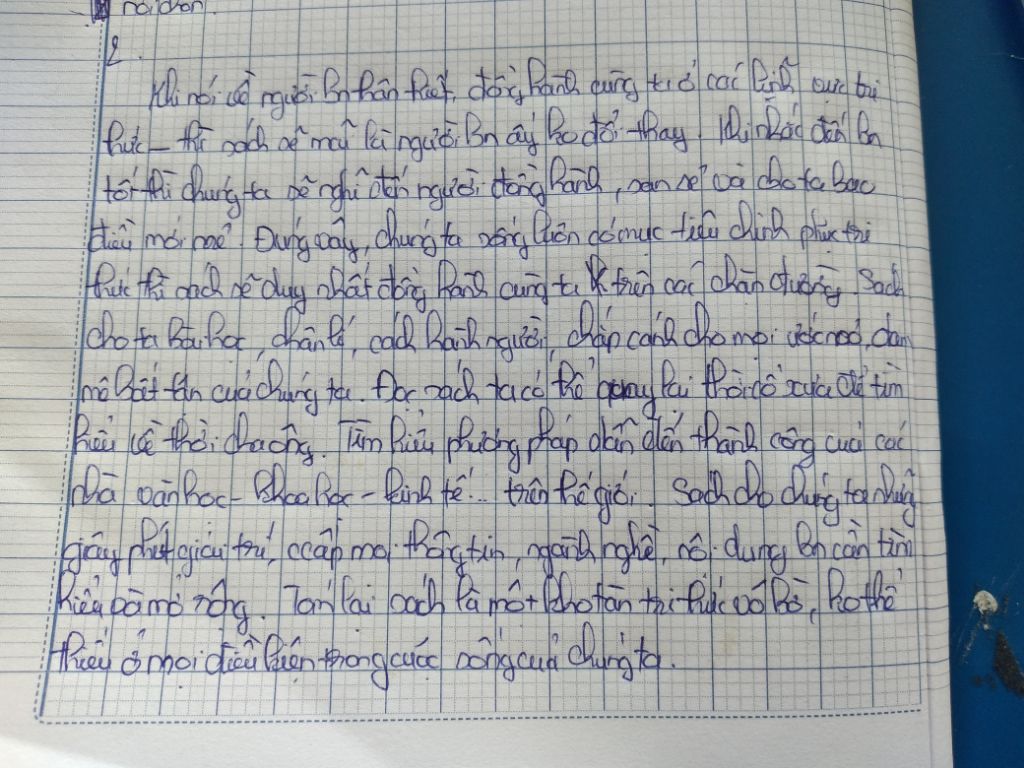 nói chán.
2.
Khi nói về người bn thân thiết, đồng hành cùng ta ở các lĩnh vực tri
thức - thì sách sẽ mãi là người bn ấy ko đổi thay. Khi nhắc đến bn
tốt thì chúng ta sẽ nghĩ đến người đồng hành, san sẻ và cho ta bao
điều mới mẻ. Đúng vậy, chúng ta sống luôn có mục tiêu chinh phục tri
thức thì sách sẽ duy nhất đồng hành cùng ta trên các chặn đường. Sách
cho ta bài học, chân lí, cách hành người, chấp cánh cho mọi ước mơ, đam
mê bất tận của chúng ta. Đọc sách ta có thể quay lại thời cổ xưa để tìm
hiểu về thời cha ông. Tìm hiểu phương pháp dẫn đến thành công của các
nhà văn học - khoa học - kinh tế... trên thế giới. Sách cho chúng ta những
giây phút giải trí, ccấp mọi thông tin, ngành nghề, nội dung bn cần tìm
hiểu và mở rộng. Tóm lại sách là một kho tàn tri thức vô bờ, ko thể
thiếu ở mọi điều kiện trong cuộc sống của chúng ta.